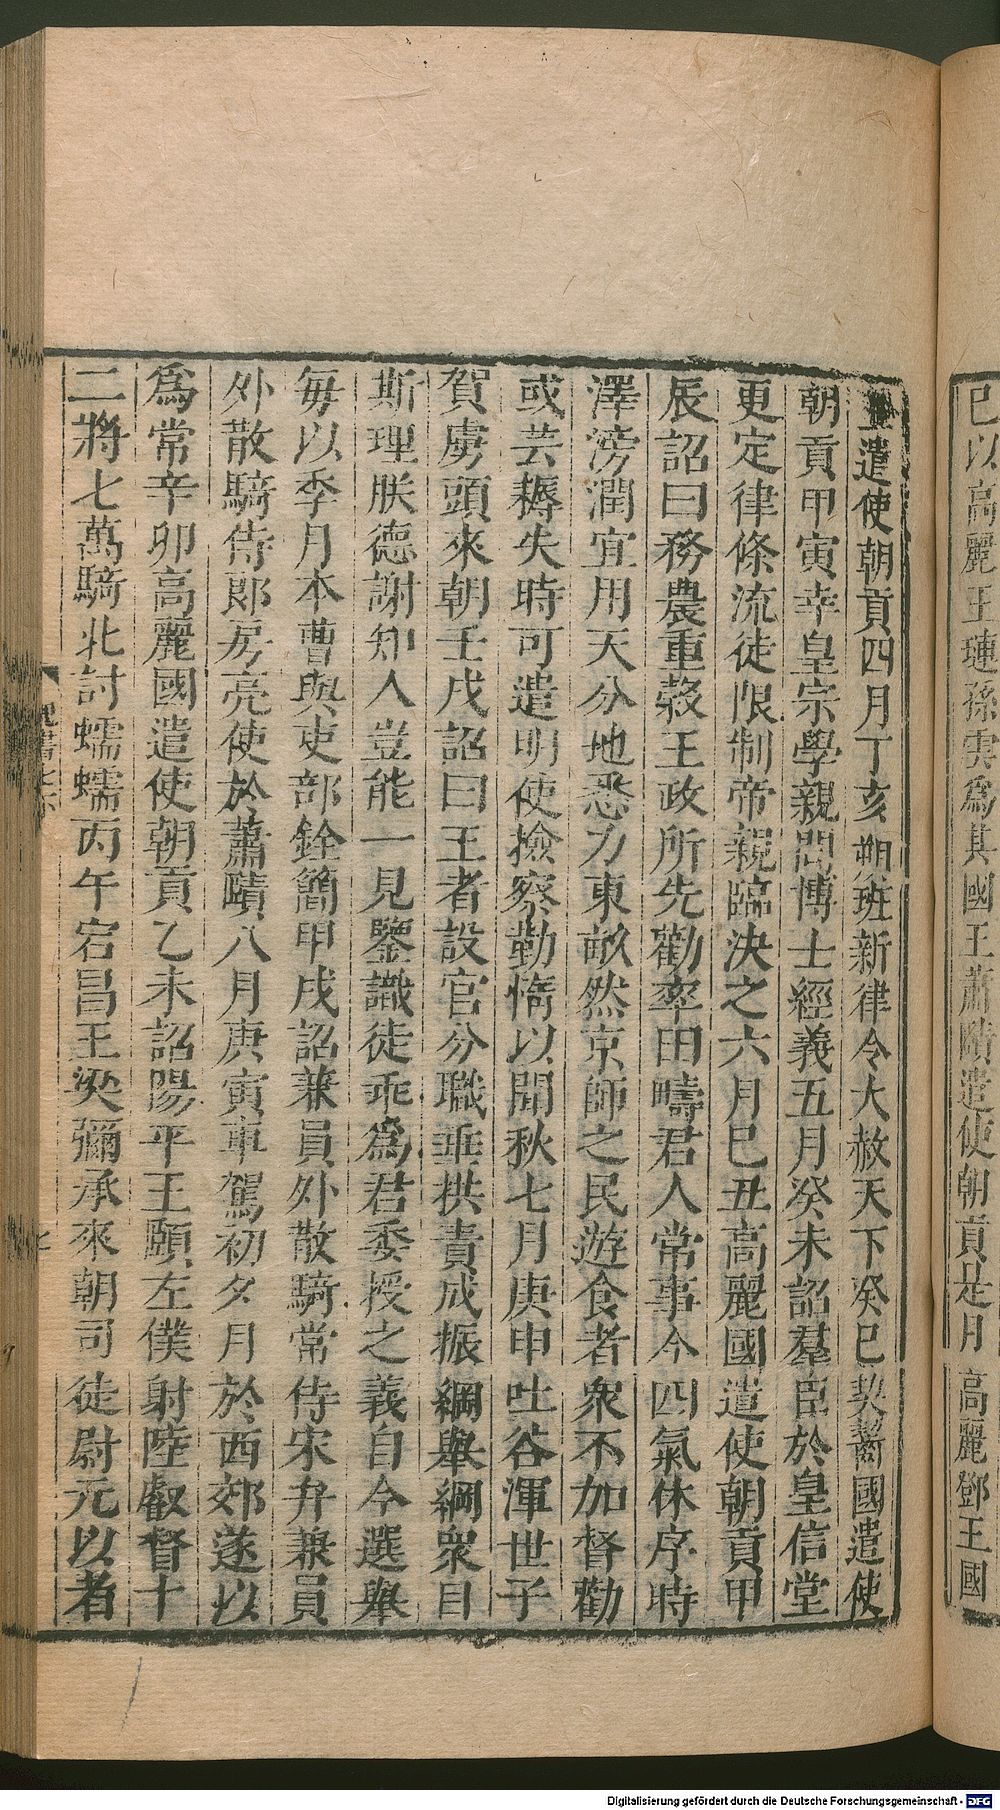 巳以高麗王璉孫雲爲其國王蕭賾遣使朝貢是月高麗鄧王國
遣使朝貢四月丁亥朔班新律令大赦天下癸巳契齧國遣使
朝貢甲寅幸皇宗學親問博士經義五月癸未詔羣臣於皇信堂
更定律條流徒限制帝親臨決之六月巳丑高麗國遣使朝貢甲
辰詔曰務農重穀王政所先勸率田疇君人常事今四氣休序時
澤滂潤宜用天分地悉力東畝然京師之民遊食者衆不加督勸
或芸耨失時可遣明使撿察勤惰以聞秋七月庚申吐谷渾世子
賀虜頭來朝壬戌詔曰王者設官分職垂拱責成振綱舉綱衆目
斯理朕德謝知人豈能一見鑒識徒乖爲君委授之義自今選舉
每以季月本曹與吏部銓簡甲戌詔兼員外散騎常侍宋弁兼員
外散騎侍郎房亮使於蕭賾八月庚寅車駕初夕月於西郊遂以
爲常辛卯高麗國遣使朝貢乙未詔陽平王頤左僕射陸叡督十
二將七萬騎北討蠕蠕丙午宕昌王梁彌承來朝司徒尉元以老
魏書七下
七
Digitalisierung gefördert durch die Deutsche Forschungsgemeinschaft - DFG